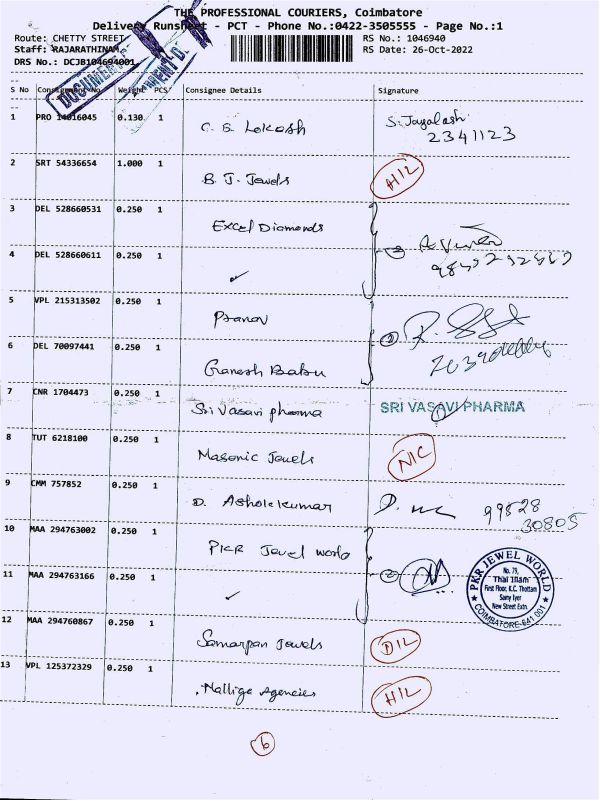 THE PROFESSIONAL COURIERS, Coimbatore
Delivery Runsheet - PCT - Phone No.:0422-3505555 - Page No.:1
Route: CHETTY STREET RS No.: 1046940
Staff: RAJARATHINAM RS Date: 26-Oct-2022
DRS No.: DCJB104694001
S No Consignment No Weight PCS Consignee Details Signature
1 PRO 14016045 0.130 1 C. S. Lokesh S. Jayalash
2341123
2 SRT 54336654 1.000 1 B. J. Jewels H/L
3 DEL 528660531 0.250 1 Excel Diamonds
4 DEL 528660611 0.250 1 ✓
5 VPL 215313502 0.250 1 Pranav
6 DEL 70097441 0.250 1 Ganesh Babu
7 CNR 1704473 0.250 1 Sri Vasavi pharma SRI VASAVI PHARMA
8 TUT 6218100 0.250 1 Masonic Jewels N/C
9 CMM 757852 0.250 1 D. Ashokkumar 99528
30805
10 MAA 294763002 0.250 1 PKR Jewel World
11 MAA 294763166 0.250 1 ✓
PKR JEWEL WORLD
No. 79,
"Thai Illam"
First Floor, K.C. Thottam
Samy Iyer
New Street Extn.
COIMBATORE-641 001
12 MAA 294760867 0.250 1 Samarpan Jewels D/L
13 VPL 125372329 0.250 1 Mallige Agencies H/L
6